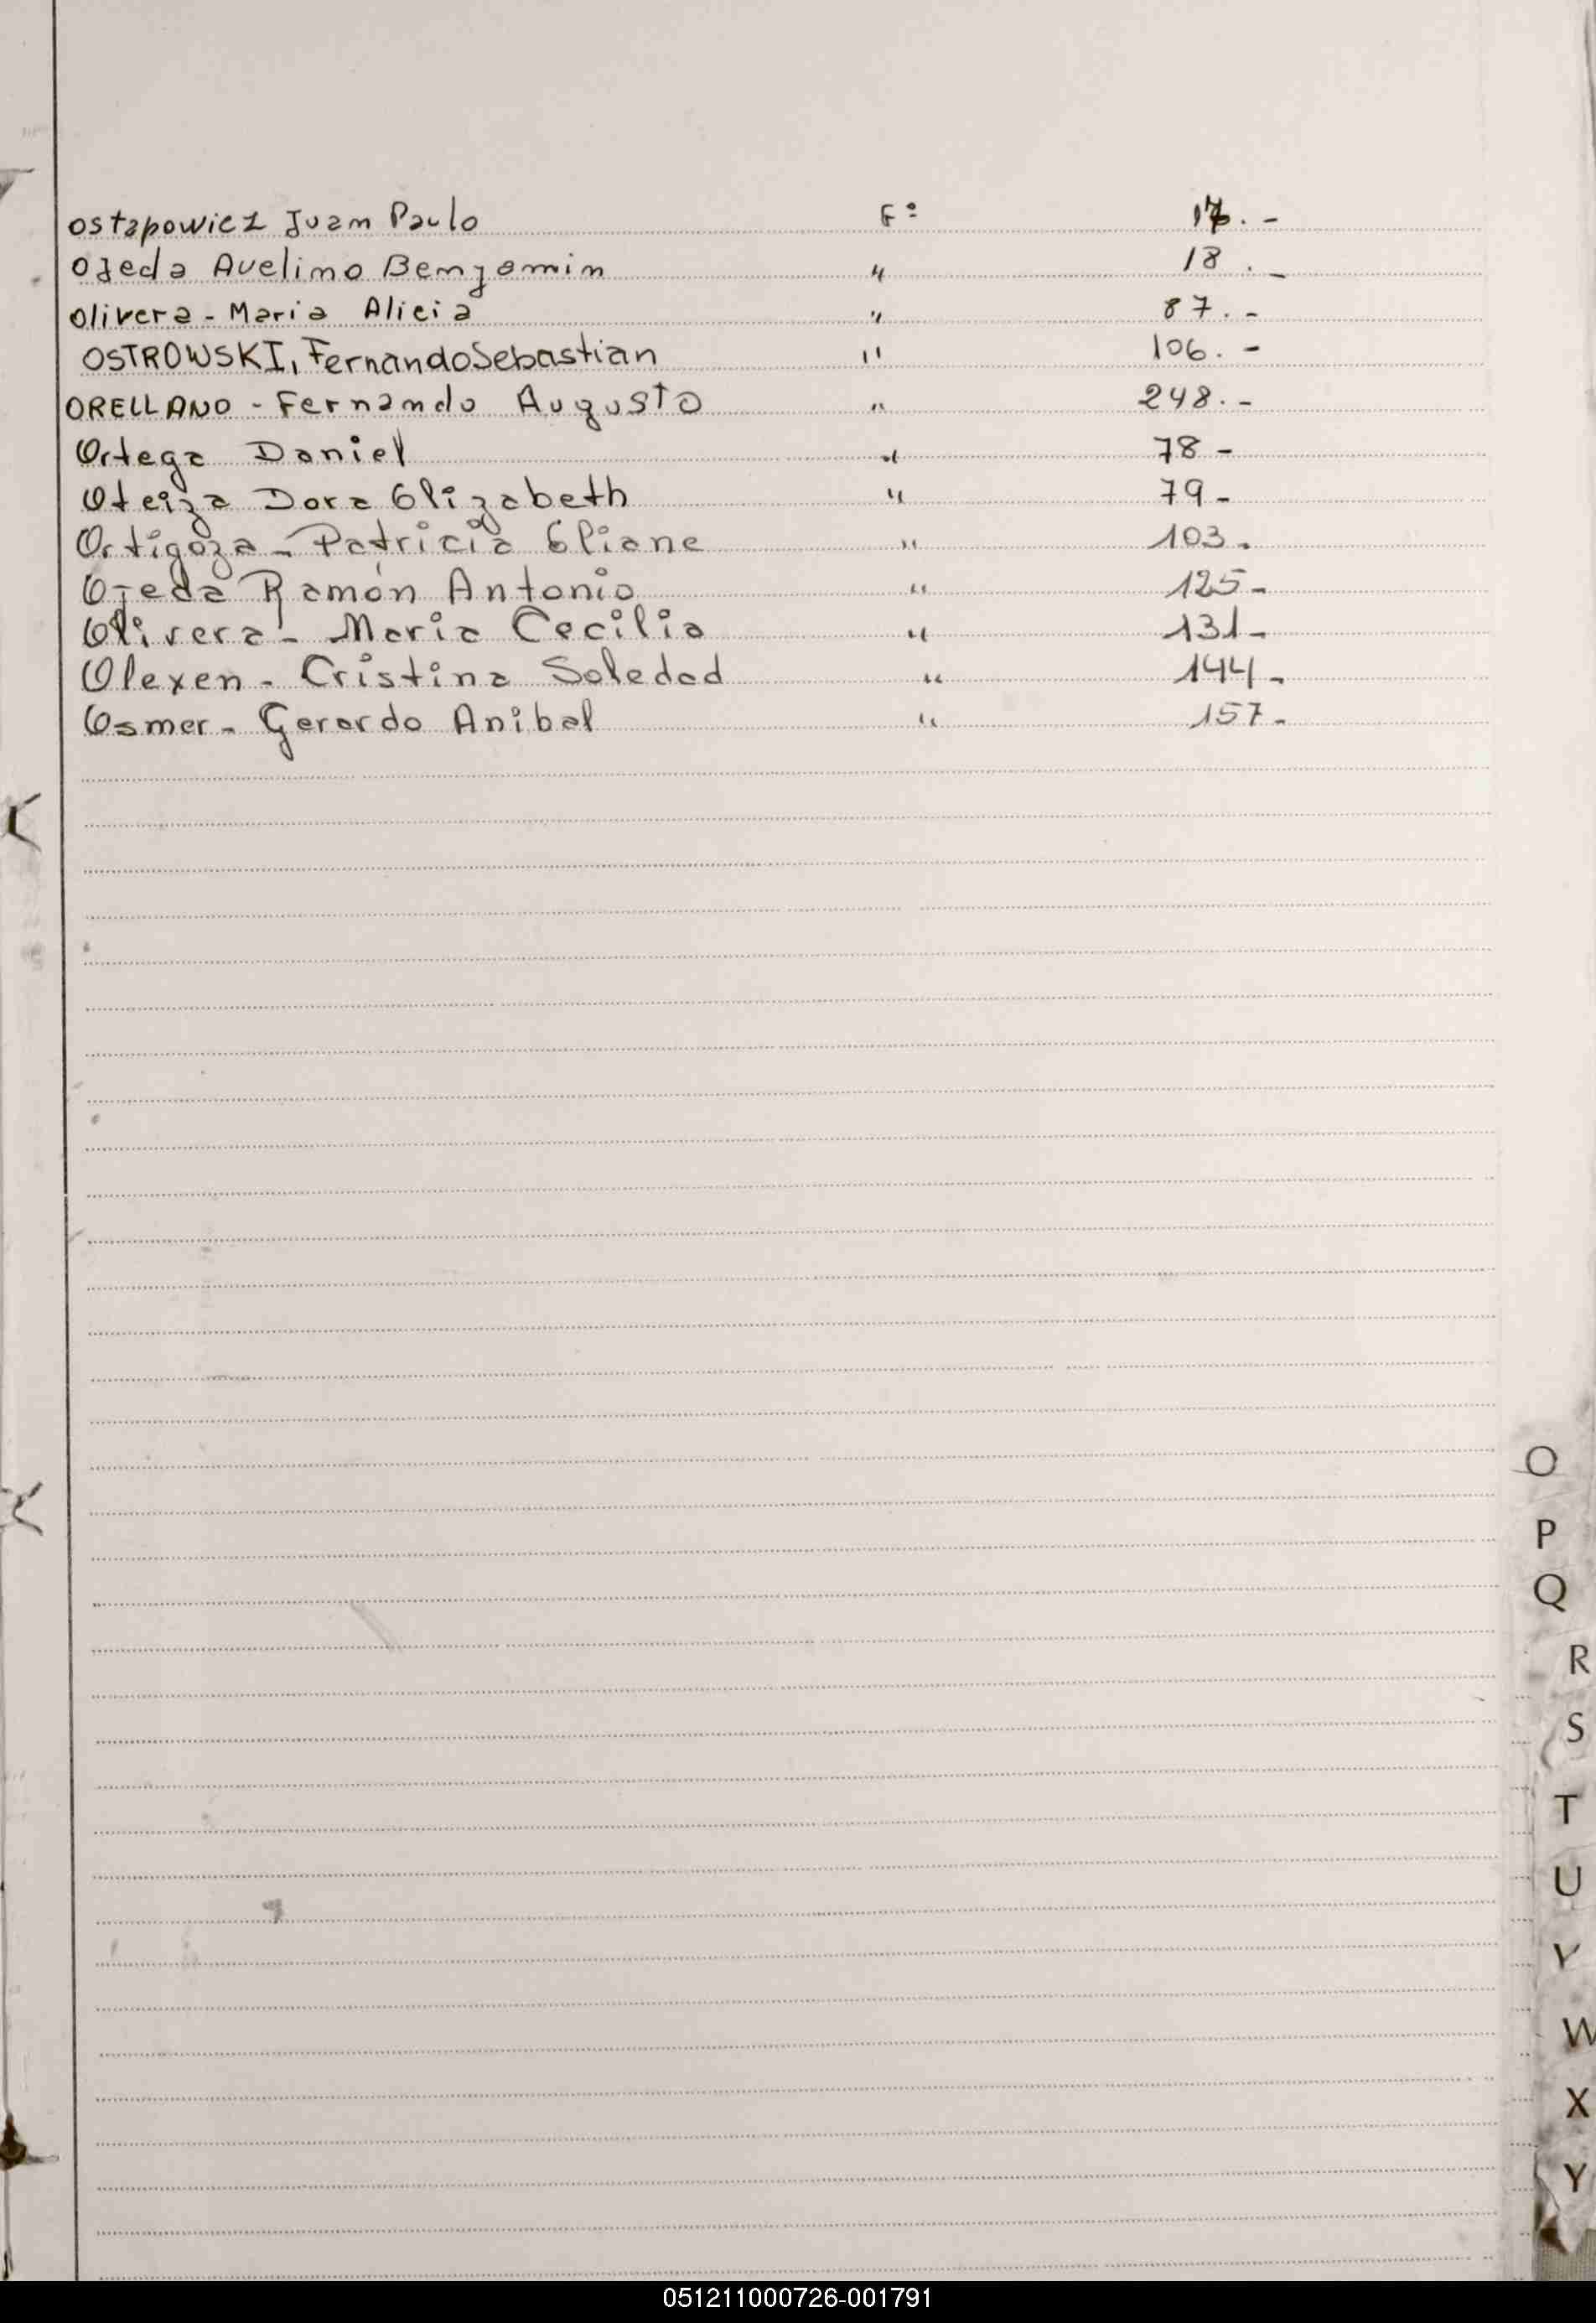 Ostapowicz Juan Paulo F° 17.-
Ojeda Avelino Benjamin " 18.-
Olivera - Maria Alicia " 87.-
OSTROWSKI, Fernando Sebastian " 106.-
ORELLANO - Fernando Augusto " 248.-
Ortega Daniel " 78-
Oteiza Dora Elizabeth " 79-
Ortigoza - Patricia Eliane " 103.
Ojeda Ramón Antonio " 125-
Olivera - Maria Cecilia " 131-
Olexen - Cristina Soledad " 144-
Osmer - Gerardo Anibal " 157-
O
P
Q
R
S
T
U
V
W
X
Y
051211000726-001791